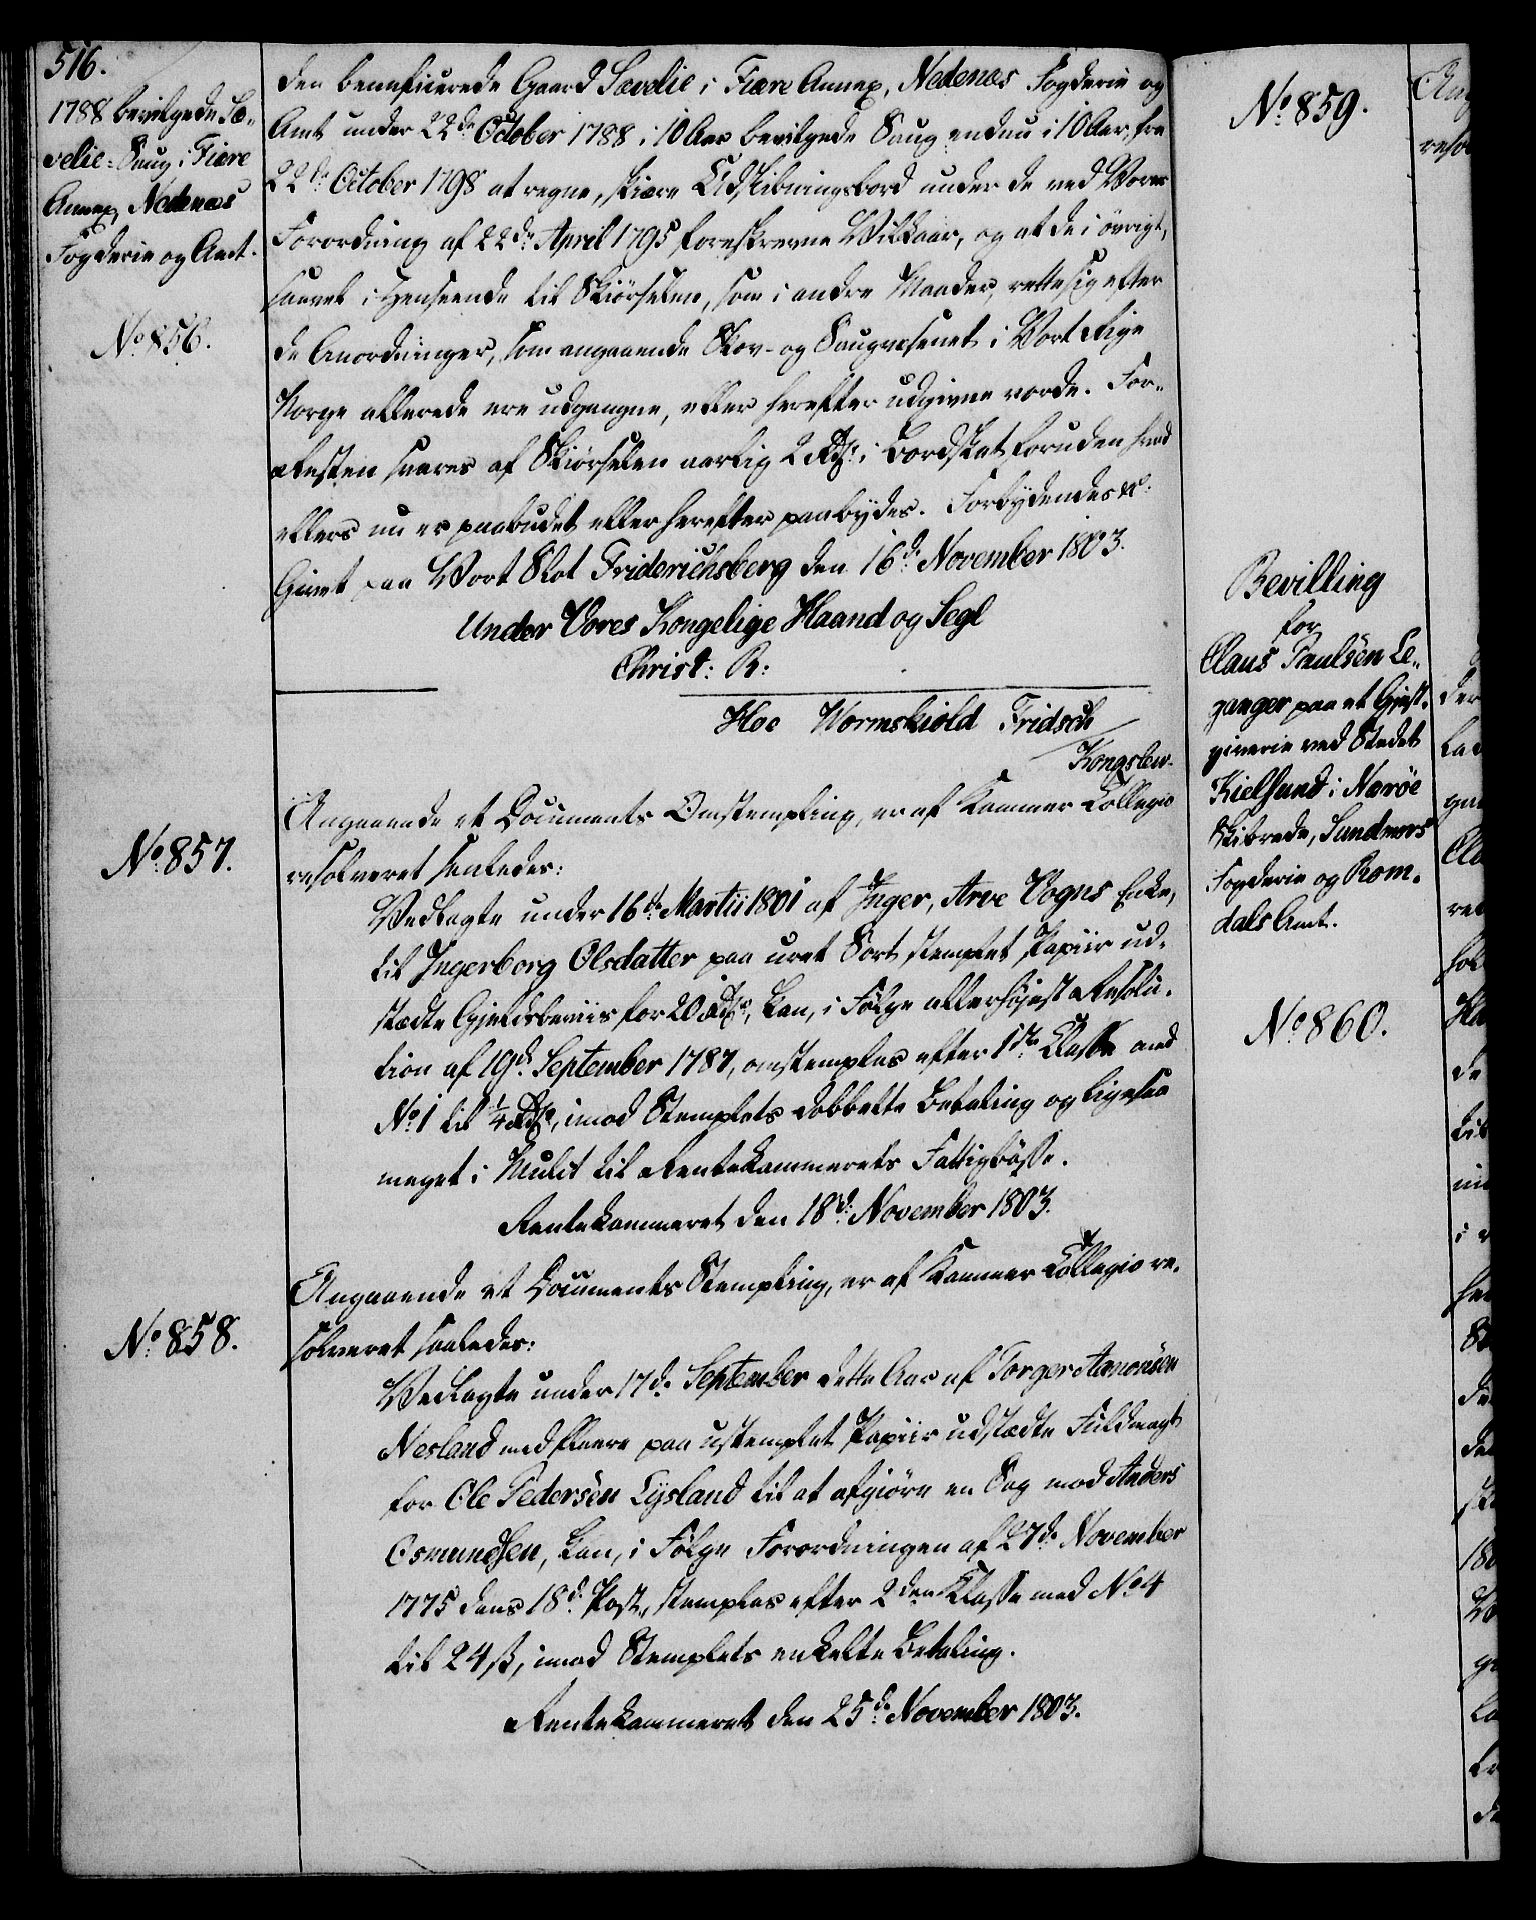 516.
1788 bevilgede Sæ-
velie-Saug i Fiære
Annex, Nedenæs
Fogderie og Amt.
No. 856.
den beneficerede Gaard Sævelie i Fiære Annex, Nedenæs Fogderie og
Amt under 22de October 1788 i 10 Aar bevilgede Saug endnu i 10 Aar, fra
22de October 1798 at regne, skiære Udskibningsbord under de ved Vores
Forordning af 22de April 1795 foreskrevne Vilkaar, og at de i övrigt,
saavel i Henseende til Skiörselen, som i andre Maader, rette sig efter
de Anordninger, som angaaende Skov- og Saugvæsenet i Vort Rige
Norge allerede ere udgangne, eller herefter udgivne vorde. For-
resten svares af Skiörselen aarlig 2 Rdr. i Bordskat foruden hvad
ellers nu er paabudet eller herefter paabydes. Forbydendes &c:
Givet paa Vort Slot Friderichsberg den 16de November 1803.
Under Vores Kongelige Haand og Segl
Christ: R:
Hoe Wormskiold Fridsch
Kongslew.
No. 857.
Angaaende et Documents Omstempling, er af Kammer Collegio
resolveret saaledes:
Vedlagte under 16de Martii 1801 af Inger, Arve Vogns Enke,
til Ingerborg Olsdatter paa uret Sort stemplet Papiir ud-
stædte Gjeldsbeviis for 20 Rdr., kan, i Fölge allerhöjest Resolu-
tion af 19de September 1787, omstemples efter 1ste Classe med
No. 1 til 1/4 Rdr., imod Stemplets dobbelte Betaling og ligesaa
meget i Mulct til Rentekammerets Fattigbösse.
Rentekammeret den 18de November 1803.
No. 858.
Angaaende et Documents Stempling, er af Kammer Collegio re-
solveret saaledes:
Vedlagte under 17de September dette Aar af Torger Aanonsen
Nesland med fleere paa ustemplet Papiir udstædte Fuldmagt
for Ole Pedersen Lysland til at afgiöre en Sag mod Anders
Osmundsen, kan, i Fölge Forordningen af 27de November
1775 dens 18de Post, stemples efter 2den Classe med No. 4
til 24 ß, imod Stemplets enkelte Betaling.
Rentekammeret den 25de November 1803.
No. 859.
Bevilling
for
Claus Paulsen Le-
ganger paa et Gjest-
giverie ved Stedet
Kielsund i Norröe
Skibrede, Sundmørs
Fogderie og Rom-
dals Amt.
No. 860.